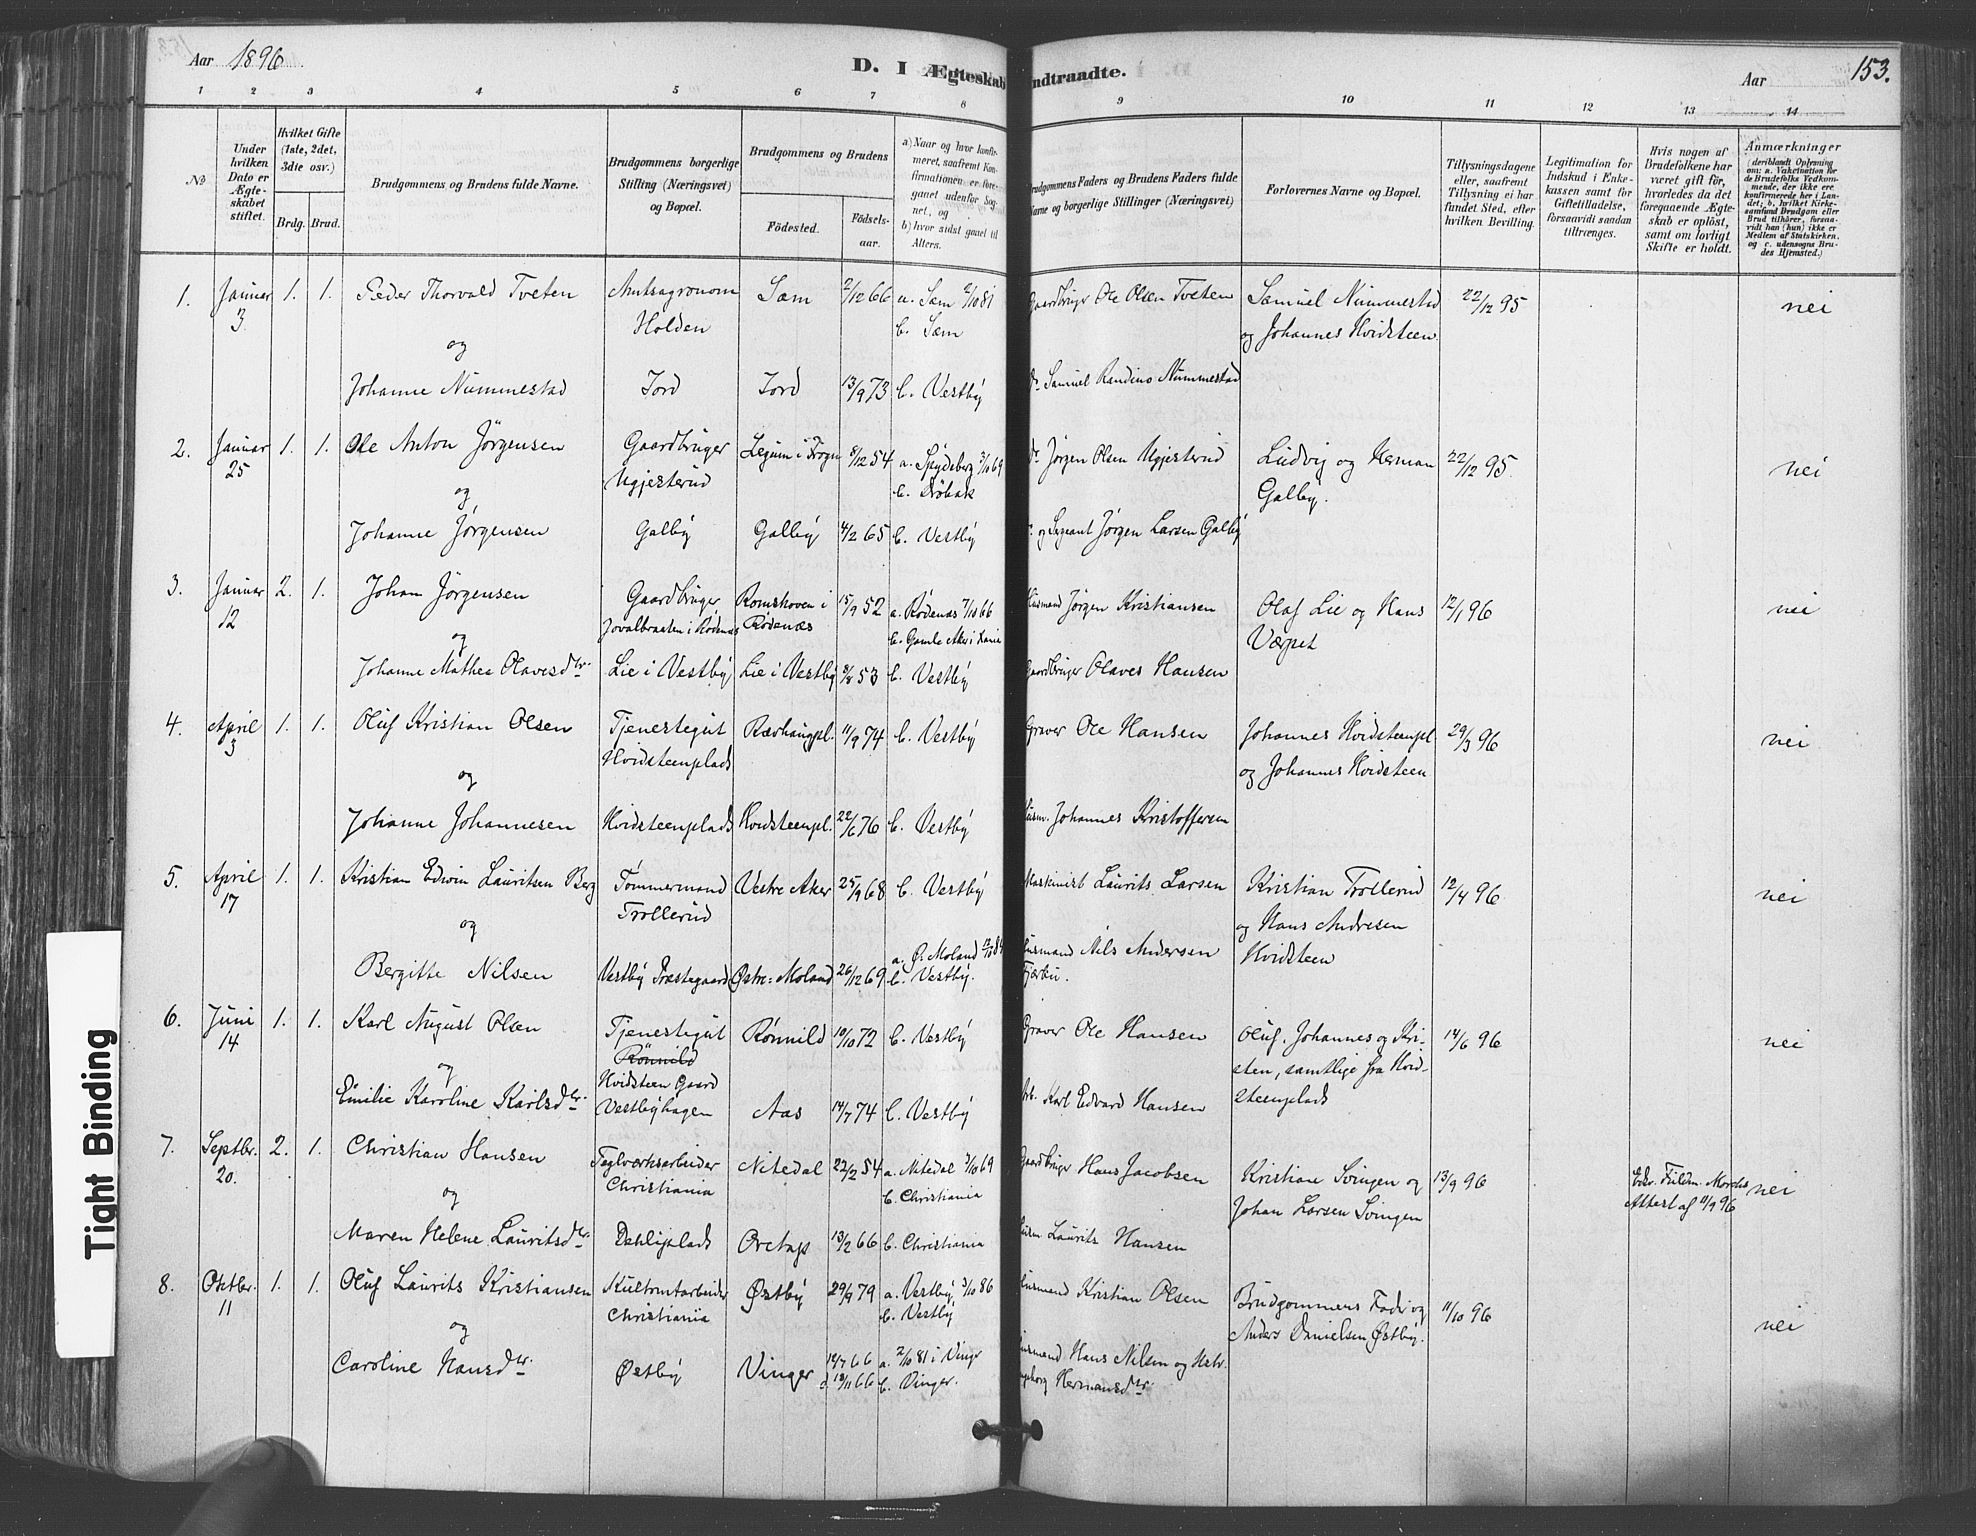 Aar 1896.
D. I Ægteskab Indtraadte.
Aar
153.
1 2 3 4 5 6 7 8 9 10 11 12 13 14
№
Under hvilken Dato er Ægteskabet stiftet.
Hvilket Gifte (1ste, 2det, 3die osv.)
Brdg. Brud.
Brudgommens og Brudens fulde Navne.
Brudgommens borgerlige Stilling (Næringsvei) og Bopæl.
Brudgommens og Brudens
Födested. Födselsaar.
a) Naar og hvor konfirmeret, saafremt Konfirmationen er foregaaet udenfor Sognet, og
b) hvor sidst gaaet til Alters.
Brudgommens Faders og Brudens Faders fulde Navne og borgerlige Stillinger (Næringsvei)
Forlovernes Navne og Bopæl.
Tillysningsdagene eller, saafremt Tillysning ei har fundet Sted, efter hvilken Bevilling.
Legitimation for Indskud i Enkekassen samt for Giftetilladelse, forsaavidt saadan tiltrænges.
Hvis nogen af Brudefolkene har været gift för, hvorledes da det foregaaende Ægteskab er oplöst, samt om lovligt Skifte er holdt.
Anmærkninger
(deriblandt Oplysning om: a. Vakcination for de Brudefolks Vedkommende, der ikke ere konfirmerede her i Landet; b. hvilket Kirkesamfund Brudgom eller Brud tilhörer, forsaavidt han (hun) ikke er Medlem af Statskirken, og c. udensogns Brudes Hjemsted.)
1. Januar 3 1. 1. Peder Thorvald Tveten Amtsagronom Holden Sem 2/12 66 a. Sem 2/10 81 b. Sem Gaardbruger Ole Olsen Tveten Samuel Nummestad og Johannes Hvidsteen 22/12 95 nei
og
Johanne Nummestad Jord Jord 13/9 73 b. Vestby do Samuel Randino Nummestad
2. Januar 25 1. 1. Ole Anton Jörgensen Gaardbruger Ugjesterud i Frogn 8/12 54 a. Spydeberg 3/10 69 b. Dröbak do Jörgen Olsen Ugjesterud Ludvig og Herman Galby. 22/12 95 nei
og
Johanne Jörgensen Galby Galby 4/2 65 b. Vestby og Sergeant Jörgen Larsen Galby
3. Januar 12 2. 1. Johan Jörgensen Gaardbruger Jovalbraaten i Rödenæs Romshoven i Rödenæs 15/9 52 a. Rödenæs 7/10 66 b. Gamle Aker i Xania Husmand Jörgen Kristiansen Olaf Lie og Hans Værpet 12/1 96 nei
og
Johanne Mathea Olavesdtr. Lie i Vestby Lie i Vestby 53 b. Vestby Gaardbruger Olaves Hansen
4. April 3 1. 1. Oluf Kristian Olsen Tjenestegut Hvidsteenplads Rævhaugpl. 11/9 74 b. Vestby Graver Ole Hansen Johannes Hvidsteenpl og Johannes Hvidsteen 29/3 96 nei
og
Johanne Johannesen Hvidsteenplads Hvidsteenpl. 22/6 76 b. Vestby Husm. Johannes Kristoffersen
5. April 17 1. 1. Kristian Edwin Lauritsen Berg Tömmermand Trollerud Vestre Aker 25/9 68 b. Vestby Maskinist Laurits Larsen Kristian Trollerud og Hans Andresen Hvidsteen 12/4 96 nei
og
Bergitte Nilsen Vestby Præstegaard Østre Moland 26/12 69 a. Ø. Moland 12/10 84 b. Vestby. Husmand Nils Andersen Fjærbu.
6. Juni 14 1. 1. Karl August Olsen Tjenestegut Rönnild Hvidsteen Gaard Rönnild 10/10 72 b. Vestby Graver Ole Hansen Oluf. Johannes og Kristen, samtlige fra Hvidsteenplads 14/6 96 nei
og
Emilie Karoline Karlsdtr. Vestbyhagen Aas 14/7 74 b. Vestby Arb. Karl Edvard Hansen
7. Septbr. 20. 2. 1. Christian Hansen Teglværksarbeider Christiania Nitedal 22/2 54 a. Nitedal 3/10 69 b. Christiania Gaardbruger Hans Jacobsen Kristian Svingen og Johan Larsen Svingen 13/9 96 Attest af 11/9 96 nei
og
Maren Helene Lauritsdtr. Dehliplads 13/2 66 b. Christiania Husm. Laurits Hansen
8. Oktbr. 11 1. 1. Oluf Laurits Kristiansen Christiania Østby 29/9 79 a. Vestby 3/10 86 b. Vestby Husmand Kristian Olsen Brudgommens Fader og Anders Danielsen Østby. 11/10 96 nei
og
Caroline Hansdtr. Østby Vinger 12/7 66 d. 18/11 66 a. 2/10 81 i Vinger b. Vinger. Husmand Hans Nilsen og Hstr. Ingeborg Hermansdtr.
Tight Binding